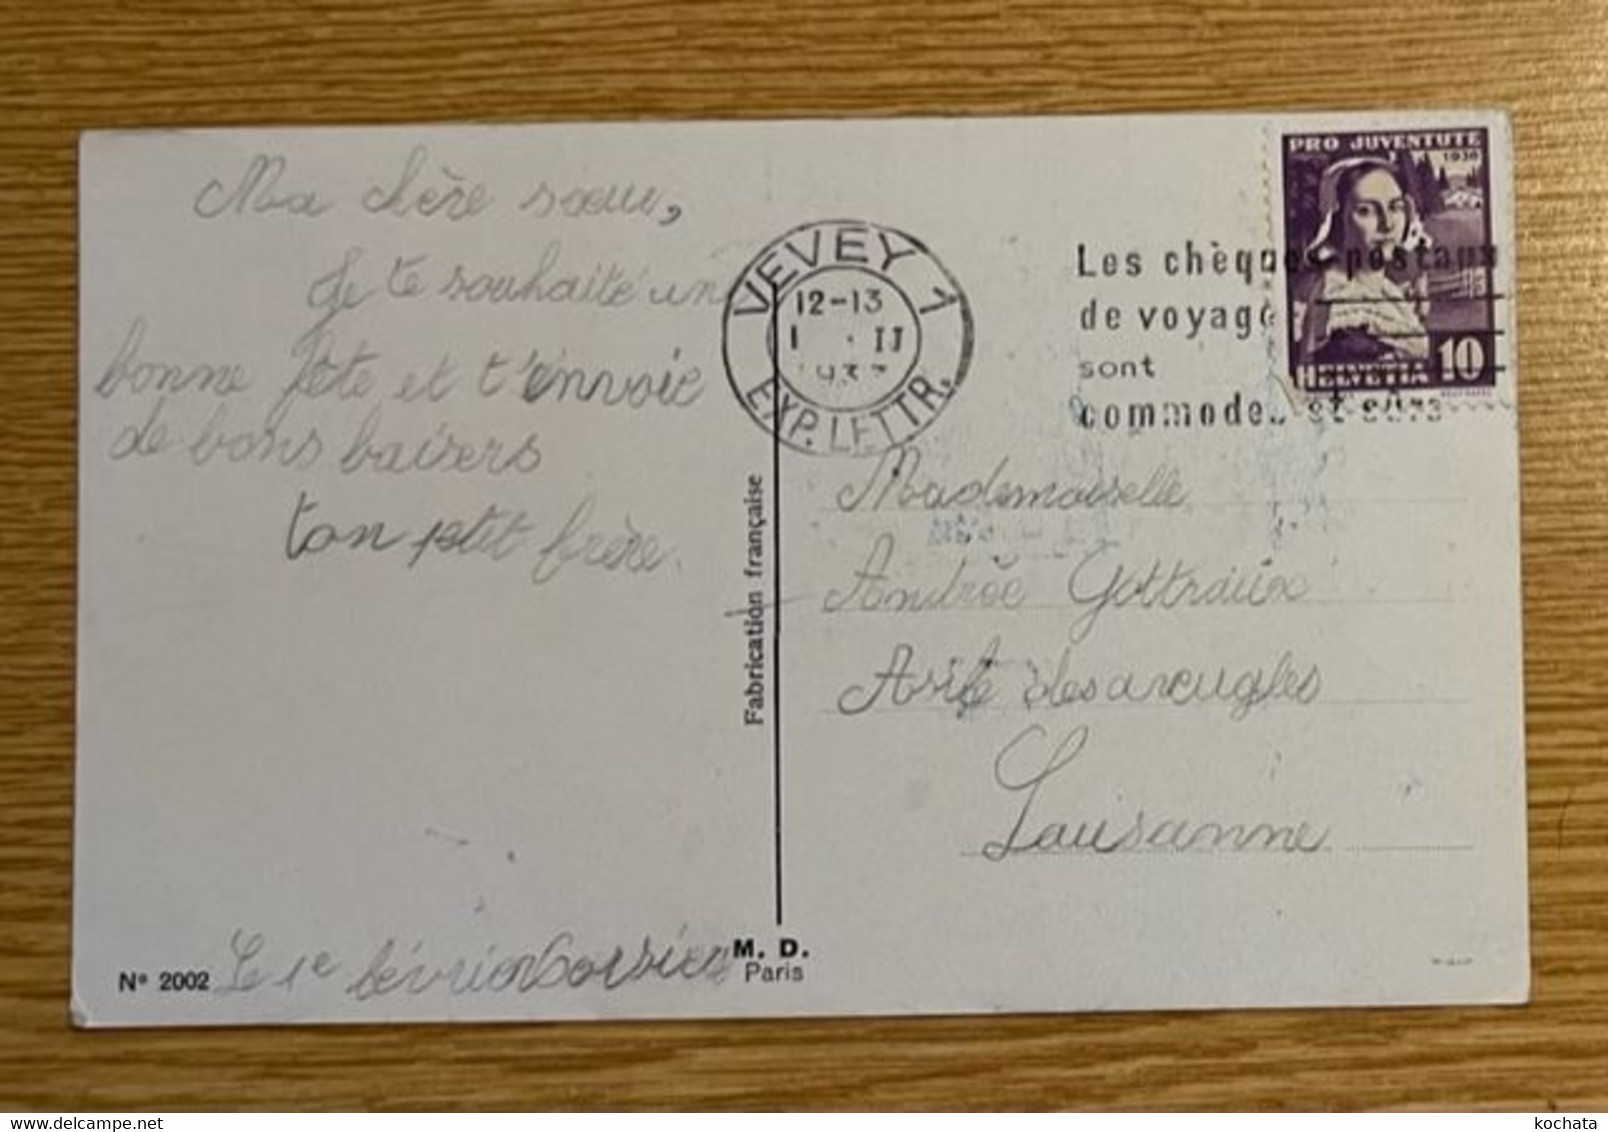 Ma chère sœur,
Je te souhaite un
bonne fête et t'envoie
de bons baisers
ton ptit frère.
Le 1e février Corsier
N° 2002
VEVEY 1
12-13
1 . II
1937
EXP. LETTR.
Fabrication française
M. D.
Paris
Les chèques postaux
de voyage
sont
commodes et sûrs
PRO JUVENTUTE
1936
HELVETIA 10
Mademoiselle
Andrée Gottraux
Asile des aveugles
Lausanne
kochata